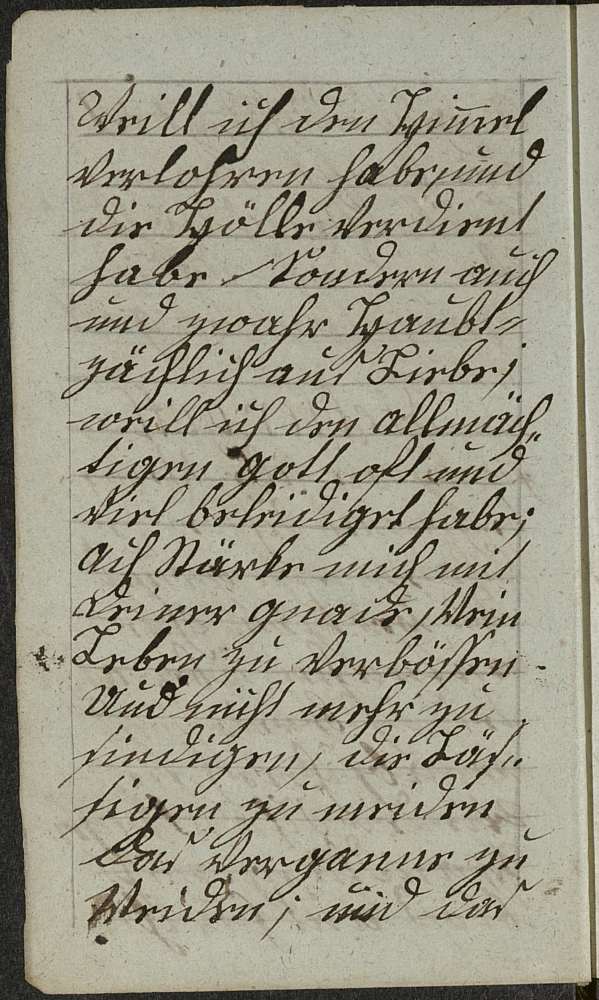 Weill ich den Himel
verlohren habe, und
die Hölle verdient
habe Sondern auch
und zwahr Haubt-
zächlich aus Liebe;
weill ich den allmäch„
tigen gott oft und
viel beleidiget habe;
ach Stärke mich mit
deiner gnade, Mein
Leben zu verbössern
Und nicht mehr zu
sindigen, die
zu meiden
das verganne zu
und das